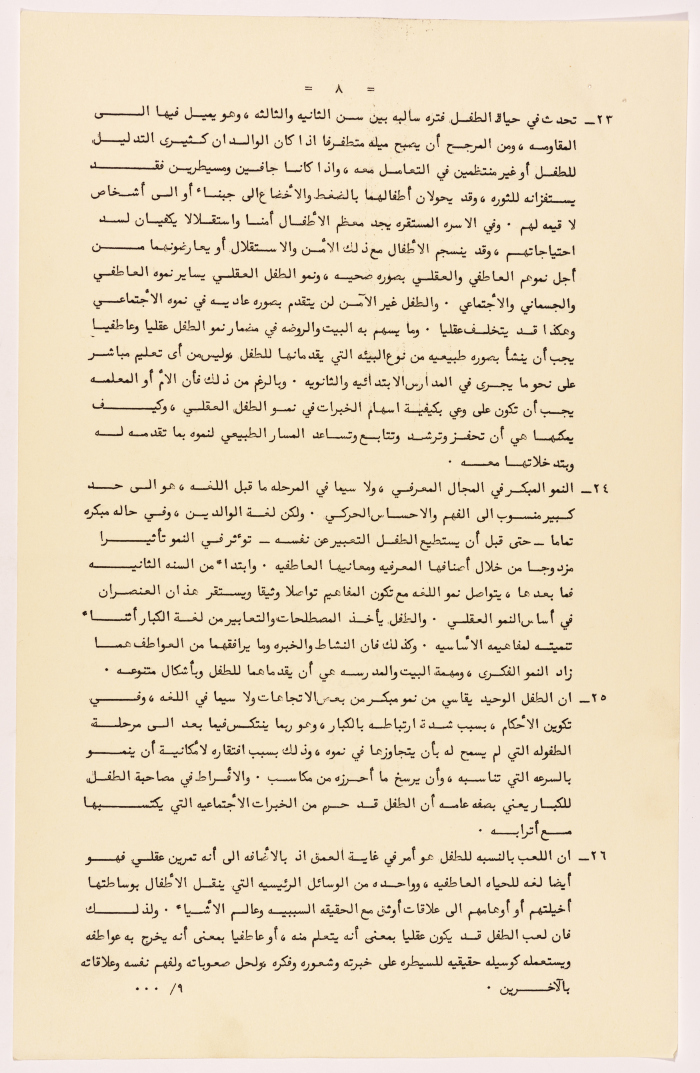 = ٨ =
٢٣ــ تحدث في حياة الطفل فتره سالبه بين سن الثانيه والثالثه ، وهو يميل فيها الى
المقاومه ، ومن المرجح أن يصبح ميله متطرفا اذا كان الوالدان كثيرى التدليل
للطفل أو غير منتظمين في التعامل معه ، واذا كانا جافين ومسيطرين فقد
يستفزانه للثوره ، وقد يحولان أطفالهما بالضغط والأخضاع الى جبناء أو الى أشخاص
لا قيمه لهم ٠ وفي الاسره المستقره يجد معظم الأطفال أمنا واستقلالا يكفيان لسد
احتياجاتهم ، وقد ينسجم الأطفال مع ذلك الأمن والاستقلال أو يعارضونهما من
أجل نموهم العاطفي والعقلي بصوره صحيه ، ونمو الطفل العقلي يساير نموه العاطفي
والجسماني والأجتماعي ٠ والطفل غير الآمن لن يتقدم بصوره عاديه في نموه الأجتماعي
وهكذا قد يتخلف عقليا ٠ وما يسهم به البيت والروضه في مضمار نمو الطفل عقليا وعاطفيا
يجب أن ينشأ بصوره طبيعيه من نوع البيئه التي يقدمانها للطفل وليس من أى تعليم مباشر
على نحو ما يجرى في المدارس الابتدائيه والثانويه ٠ وبالرغم من ذلك فأن الأم أو المعلمه
يجب أن تكون على وعي بكيفية اسهام الخبرات في نمو الطفل العقلي ، وكيف
يمكنها هي أن تحفز وترشد وتتابع وتساعد المسار الطبيعي لنموه بما تقدمه له
وبتدخلاتها معه ٠
٢٤ــ النمو المبكر في المجال المعرفي ، ولا سيما في المرحله ما قبل اللغه ، هو الى حد
كبير منسوب الى الفهم والاحساس الحركي ٠ ولكن لغة الوالدين ، وفي حاله مبكره
تماما ــ حتى قبل أن يستطيع الطفل التعبير عن نفسه ــ توءثر في النمو تأثيرا
مزدوجا من خلال أصنافها المعرفيه ومعانيها العاطفيه ٠ وابتداء من السنه الثانيه
فما بعدها ، يتواصل نمو اللغه مع تكون المفاهيم تواصلا وثيقا ويستقر هذان العنصران
في أساس النمو العقلي ٠ والطفل يأخذ المصطلحات والتعابير من لغة الكبار أثناء
تنميته لمفاهيمه الأساسيه ٠ وكذلك فان النشاط والخبره وما يرافقهما من العواطف هما
زاد النمو الفكرى ، ومهمة البيت والمدرسه هي أن يقدماهما للطفل وبأشكال متنوعه ٠
٢٥ــ ان الطفل الوحيد يقاسي من نمو مبكر من بعض الاتجاهات ولا سيما في اللغه ، وفي
تكوين الأحكام ، بسبب شدة ارتباطه بالكبار ، وهو ربما ينتكس فيما بعد الى مرحلة
الطفوله التي لم يسمح له بأن يتجاوزها في نموه ، وذلك بسبب افتقاره لأمكانية أن ينمو
بالسرعه التي تناسبه ، وأن يرسخ ما أحرزه من مكاسب ٠ والأفراط في مصاحبة الطفل
للكبار يعني بصفه عامه أن الطفل قد حرم من الخبرات الأجتماعيه التي يكتسبها
مع أترابه ٠
٢٦ــ ان اللعب بالنسبه للطفل هو أمر في غاية العمق اذ بالأضافه الى أنه تمرين عقلي فهو
أيضا لغه للحياه العاطفيه ، وواحده من الوسائل الرئيسيه التي ينقل الأطفال بوساطتها
أخيلتهم أو أوهامهم الى علاقات أوثق مع الحقيقه السببيه وعالم الأشياء ٠ ولذلك
فان لعب الطفل قد يكون عقليا بمعنى أنه يتعلم منه ، أو عاطفيا بمعنى أنه يخرج به عواطفه
ويستعمله كوسيله حقيقيه للسيطره على خبرته وشعوره وفكره ،ولحل صعوباته ولفهم نفسه وعلاقاته
بالآخرين ٠
٩/ ٠٠٠